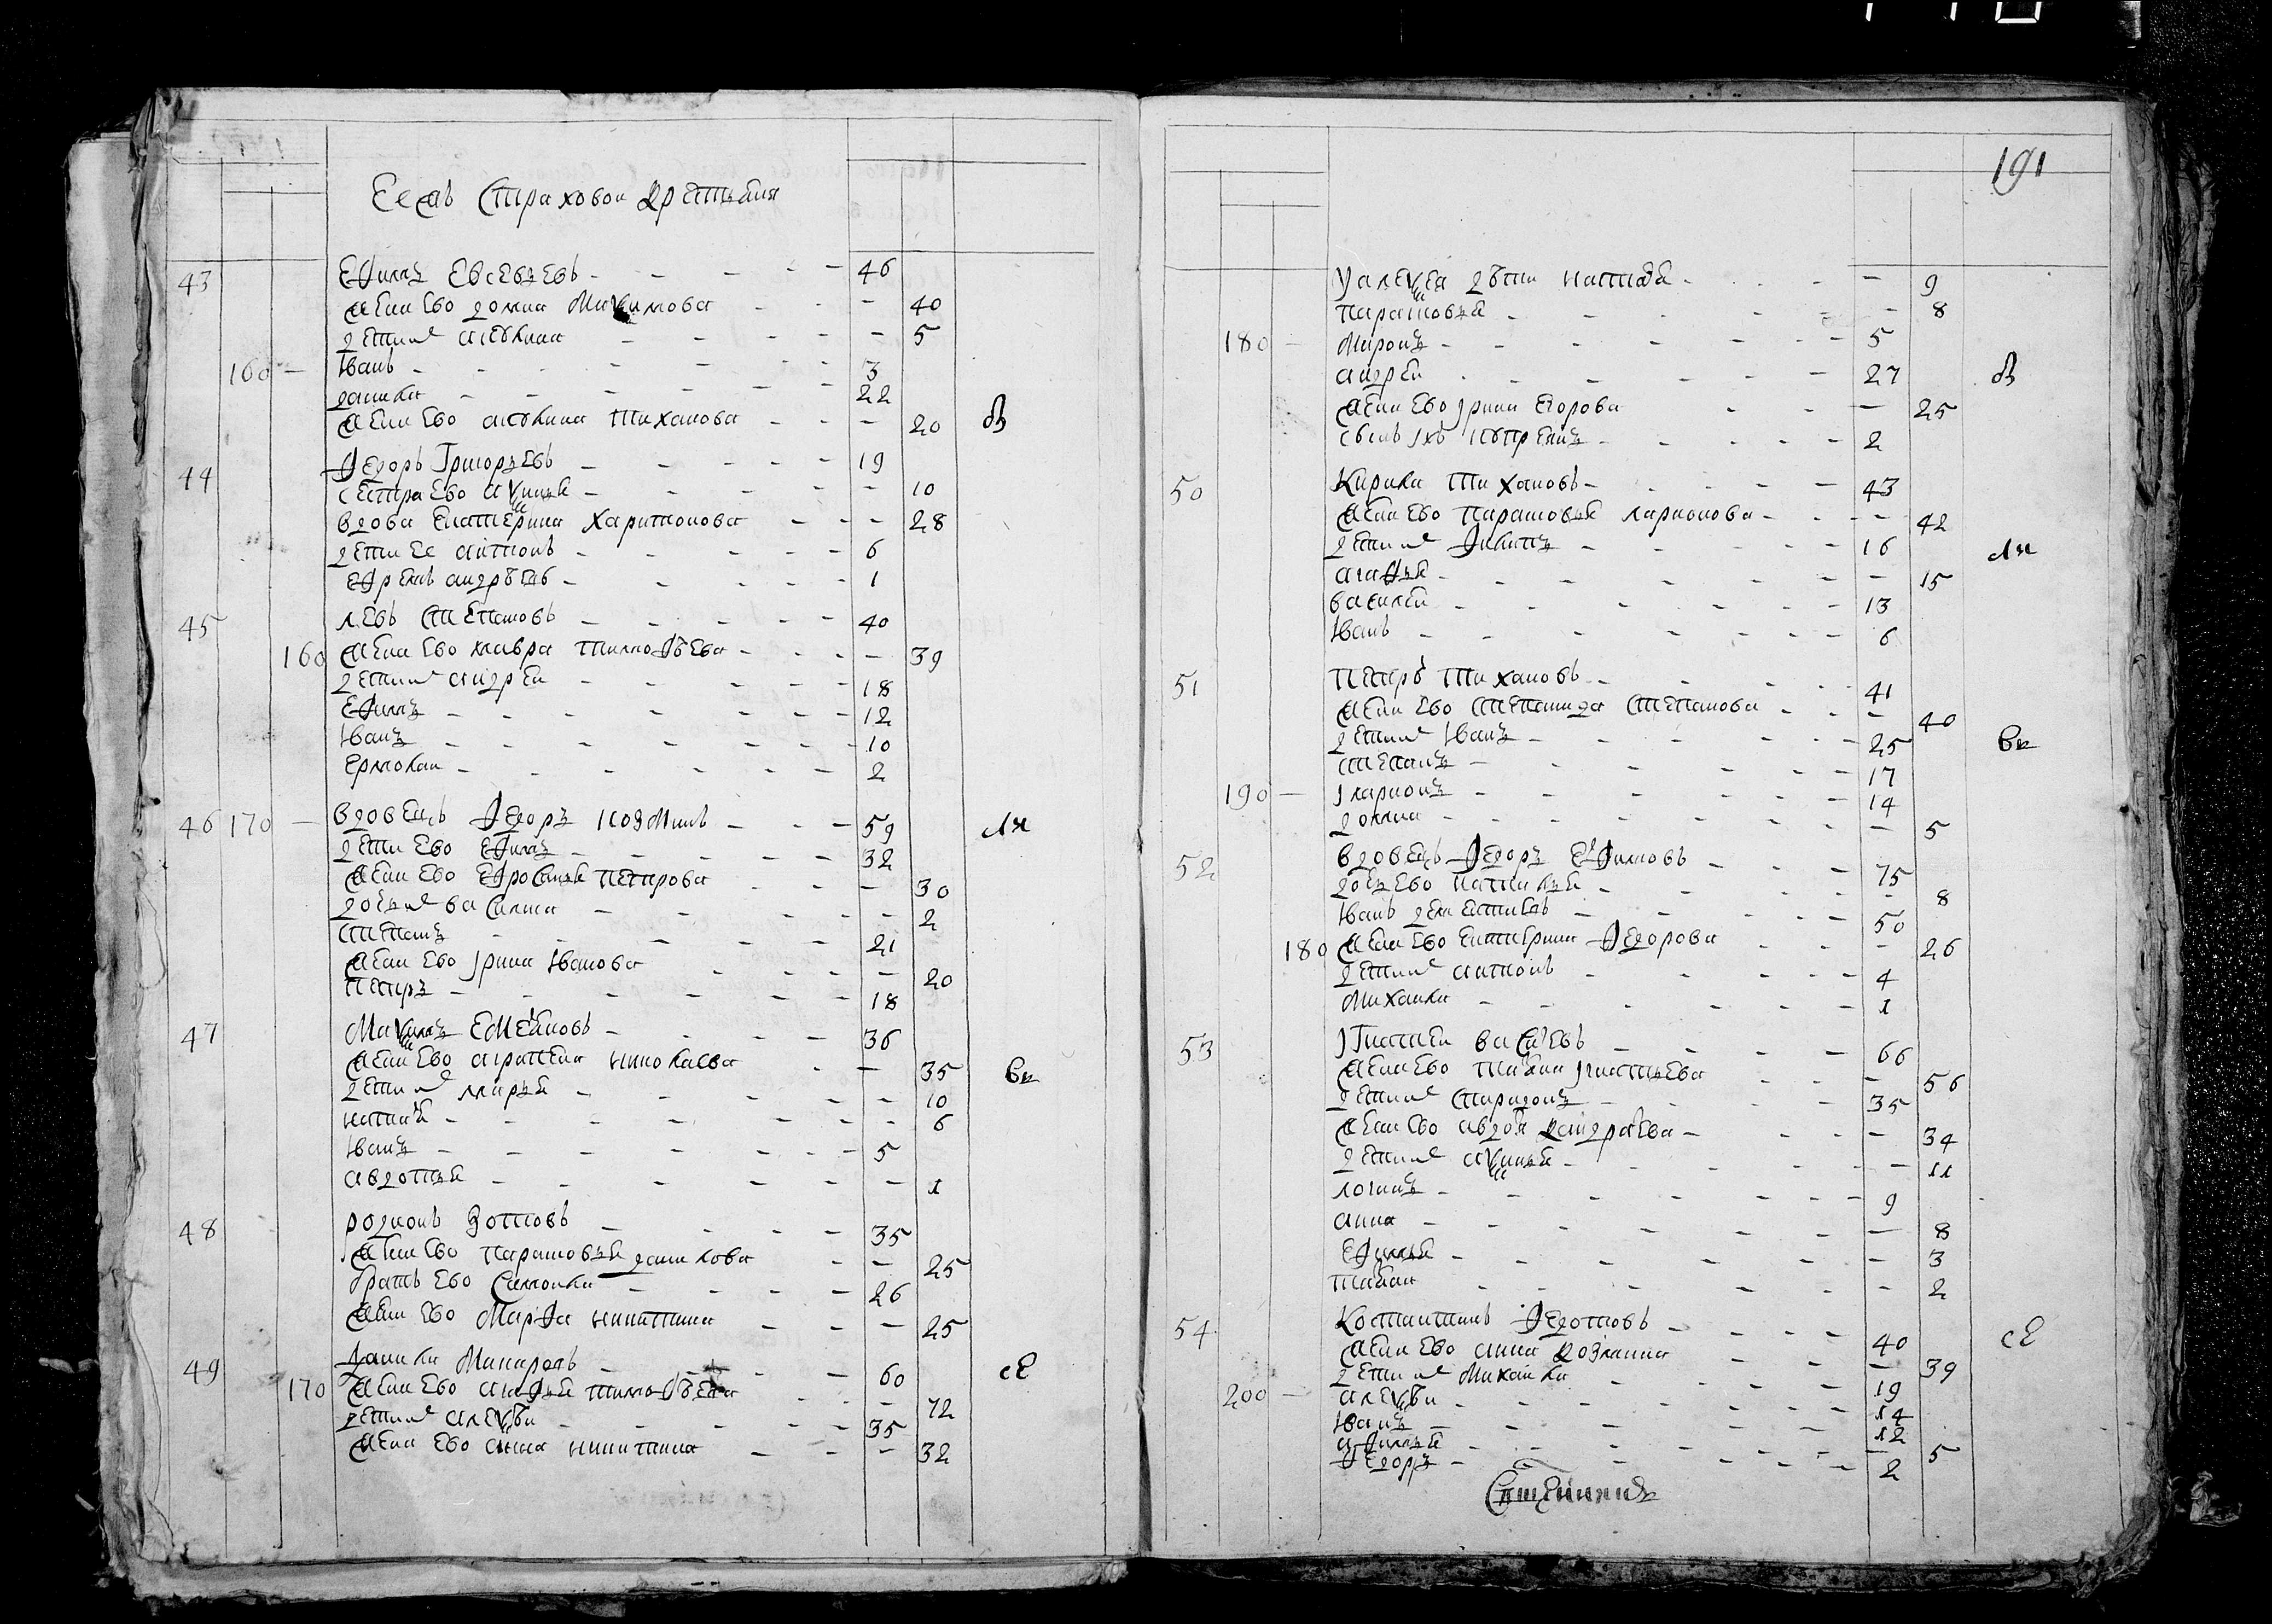 Села Страховои крестьяня
43 Ефимъ Евсевьевъ 46
жена ево домна Максимова 40
дети их акулина 5
160 Иванъ 3
данила 22
жена ево акулина тиханова 20
44 Федоръ Григорьевъ 19
сестра ево аксинья 10
вдова Екатерина харитонова 28
дети ее антонъ 6
Ефремъ андреевъ 1
45 левъ Степановъ 40
160 жена ево мавра тимофеева 39
дети их андреи 18
Ефимъ 12
Иванъ 10
Ермолаи 2
46 170 вдовецъ Федоръ козминъ 59 ля
дети ево Ефимъ 32
жена ево Ефросинья петрова 30
дочь их василиса 2
Степанъ 21
жена ево Ірина Иванова 20
Петръ 18
47 Максимъ Емельяновъ 36
жена ево аграпена николаева 35
дети их марья 10
наталья 6
Иванъ 5
авдотья 1
48 родионъ Зотовъ 35
жена ево парасковья данилова 25
братъ ево Самоила 26
жена ево Марфа никитина 25
49 Данила 60 се
170 жена ево агафья тимофеева 72
дети их алексеи 35
жена ево анна никитина 32
191
У алексея дети наталья 9
парасковья 8
180 Миронъ 5
андреи 27
жена ево Ірина Егорова 25
сынъ ихъ купреянъ 2
50 Кирила тихановъ 43
жена ево парасковья ларионова 42
дети их Филипъ 16 ля
агафья 15
василеи 13
Иванъ 6
51 петръ тихановъ 41
жена ево Степанида Степанова 40
дети их Иванъ 25
степанъ 17
190 Іларионъ 14
домна 5
52 вдовецъ Федоръ Ефимовъ 75
дочь ево наталья 8
Иванъ дементьевъ 50
180 жена ево катерина Федорова 26
дети их антонъ 4
Михаила 1
53 Ігнатеи васильевъ 66
жена ево татьяна Ігнатьева 56
дети их Спиридонъ 35
жена ево авдотья кондратьева 34
дети их аксинья 11
логинъ 9
анна 8
Ефимья 3
татьяна 2
54 Костантинъ Федотовъ 40 се
жена ево анна козмина 39
дети их Михаила 19
200 алексеи 14
Иванъ 12
афимья 5
Федоръ 2